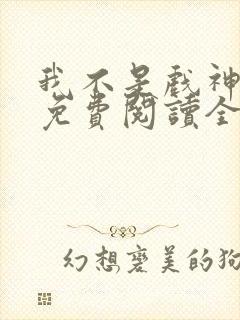 我不是戏神
免費閱讀全
幻想褒美的狗